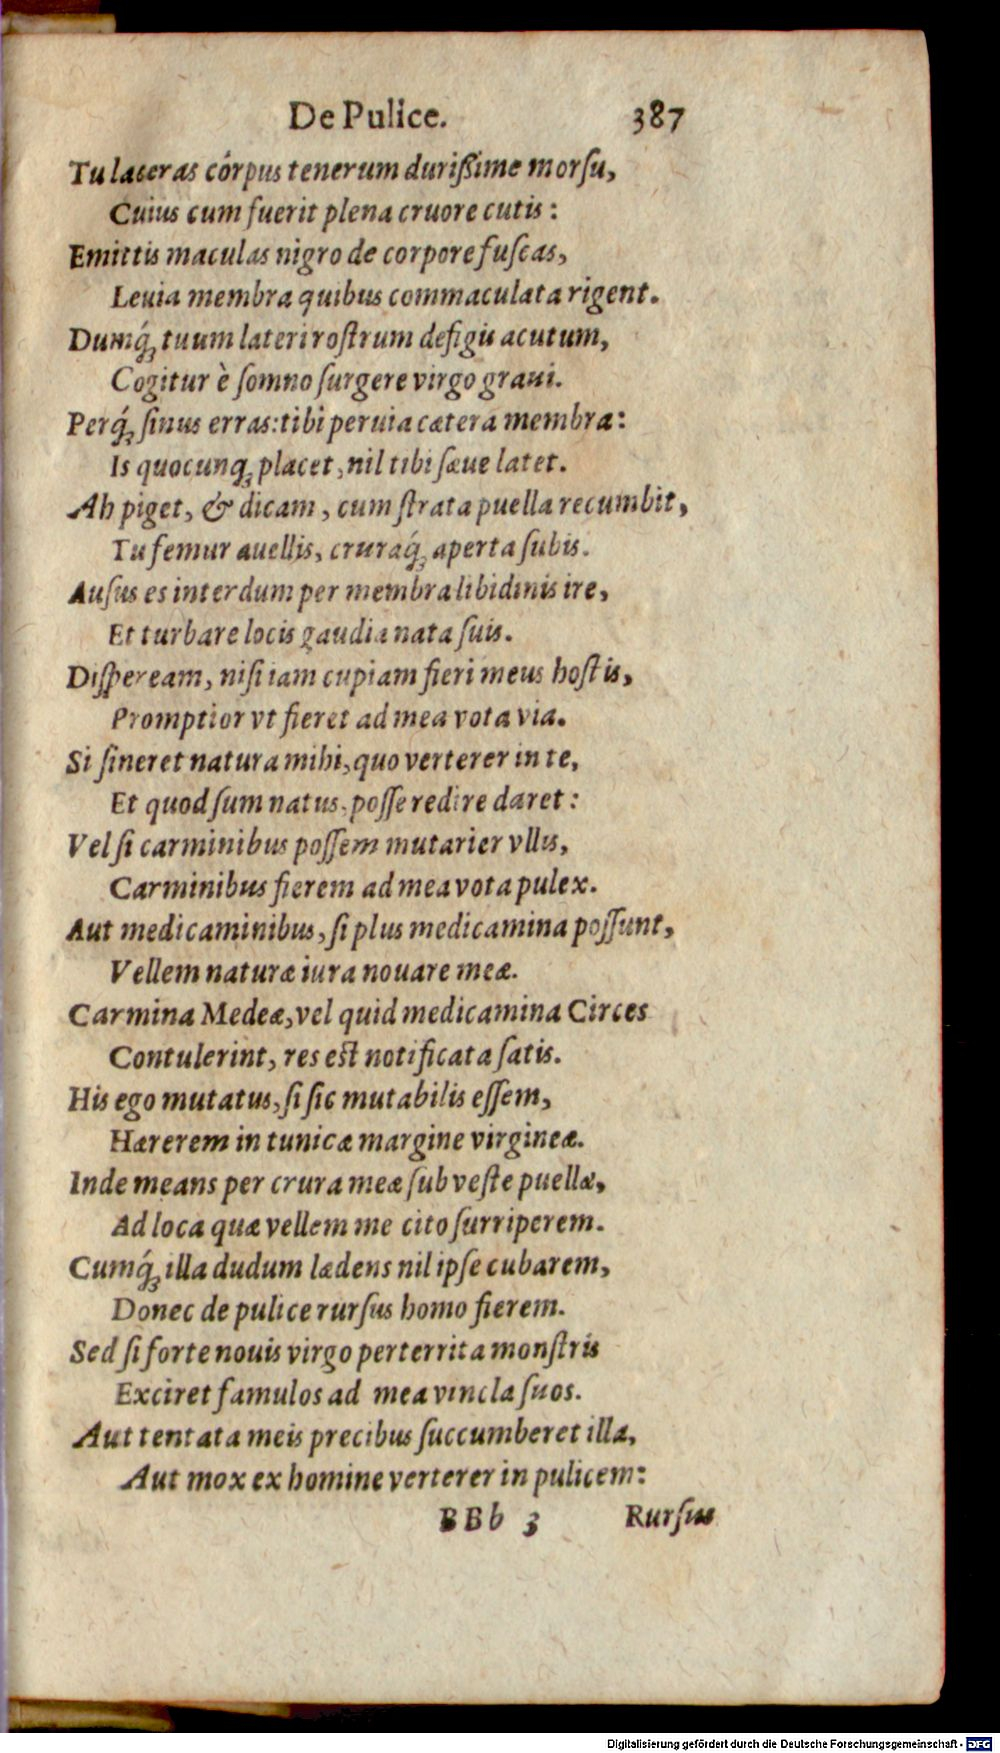 De Pulice. 387
Tu laceras córpus tenerum durißime morſu,
Cuius cum fuerit plena cruore cutis:
Emittis maculas nigro de corpore fuſcas,
Leuia membra quibus commaculata rigent.
Dumq́ꝫ tuum lateri roſtrum defigis acutum,
Cogitur è ſomno ſurgere virgo graui.
Perq́ꝫ ſinus erras: tibi peruia cætera membra:
Is quocunqꝫ placet, nil tibi ſæue latet.
Ah piget, & dicam, cum ſtrata puella recumbit,
Tu femur auellis, cruraq́ꝫ aperta ſubis.
Auſus es interdum per membra libidinis ire,
Et turbare locis gaudia nata ſuis.
Diſpeream, niſi iam cupiam fieri meus hoſtis,
Promptior vt fieret ad mea vota via.
Si ſineret natura mihi, quo verterer in te,
Et quod ſum natus, poſſe redire daret:
Vel ſi carminibus poſſem mutarier vllis,
Carminibus fierem ad mea vota pulex.
Aut medicaminibus, ſi plus medicamina poſſunt,
Vellem naturæ iura nouare meæ.
Carmina Medeæ, vel quid medicamina Circes
Contulerint, res eſt notificata ſatis.
His ego mutatus, ſi ſic mutabilis eſſem,
Hærerem in tunicæ margine virgineæ.
Inde means per crura meæ ſub veſte puellæ,
Ad loca quæ vellem me cito ſurriperem.
Cumq́ꝫ illa dudum lædens nil ipſe cubarem,
Donec de pulice rurſus homo fierem.
Sed ſi forte nouis virgo perterrita monſtris
Exciret famulos ad mea vincla ſuos.
Aut tentata meis precibus ſuccumberet illa,
Aut mox ex homine verterer in pulicem:
BBb 3 Rurſus
Digitalisierung gefördert durch die Deutsche Forschungsgemeinschaft - DFG